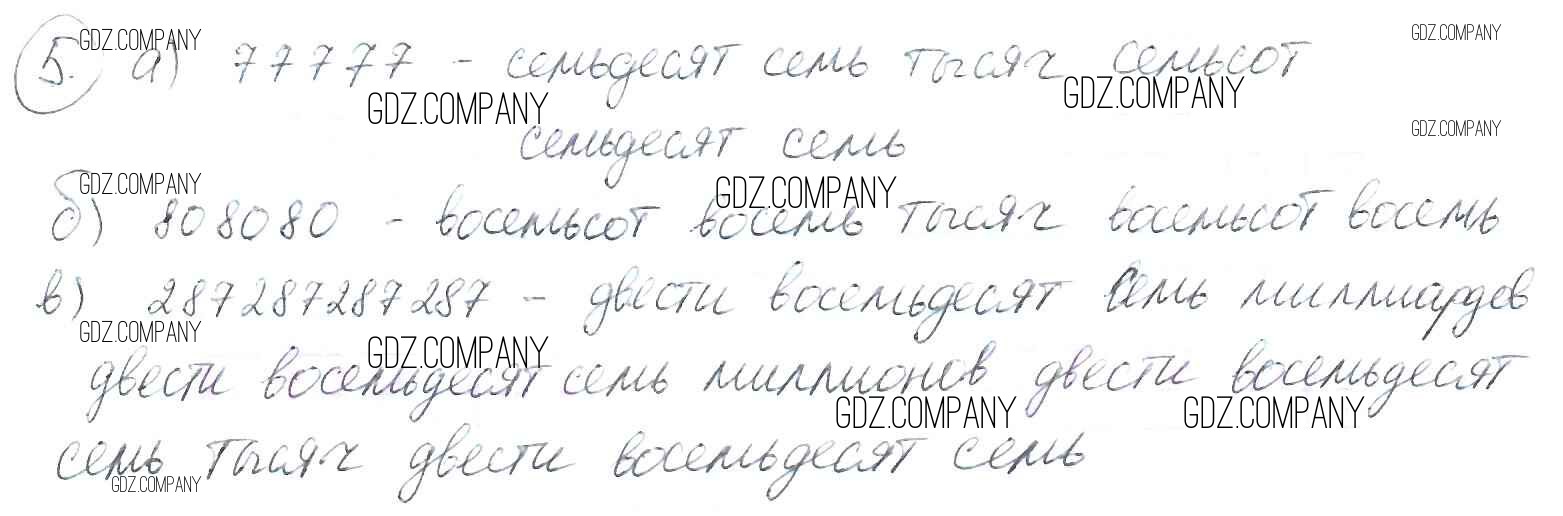 5. а) 77777 - семьдесят семь тысяч семьсот
семьдесят семь
б) 808080 - восемьсот восемь тысяч восемьсот восемь
в) 287287287287 - двести восемьдесят семь миллиардов
двести восемьдесят семь миллионов двести восемьдесят
семь тысяч двести восемьдесят семь
GDZ.COMPANY
GDZ.COMPANY
GDZ.COMPANY
GDZ.COMPANY
GDZ.COMPANY
GDZ.COMPANY
GDZ.COMPANY
GDZ.COMPANY
GDZ.COMPANY
GDZ.COMPANY
GDZ.COMPANY
GDZ.COMPANY